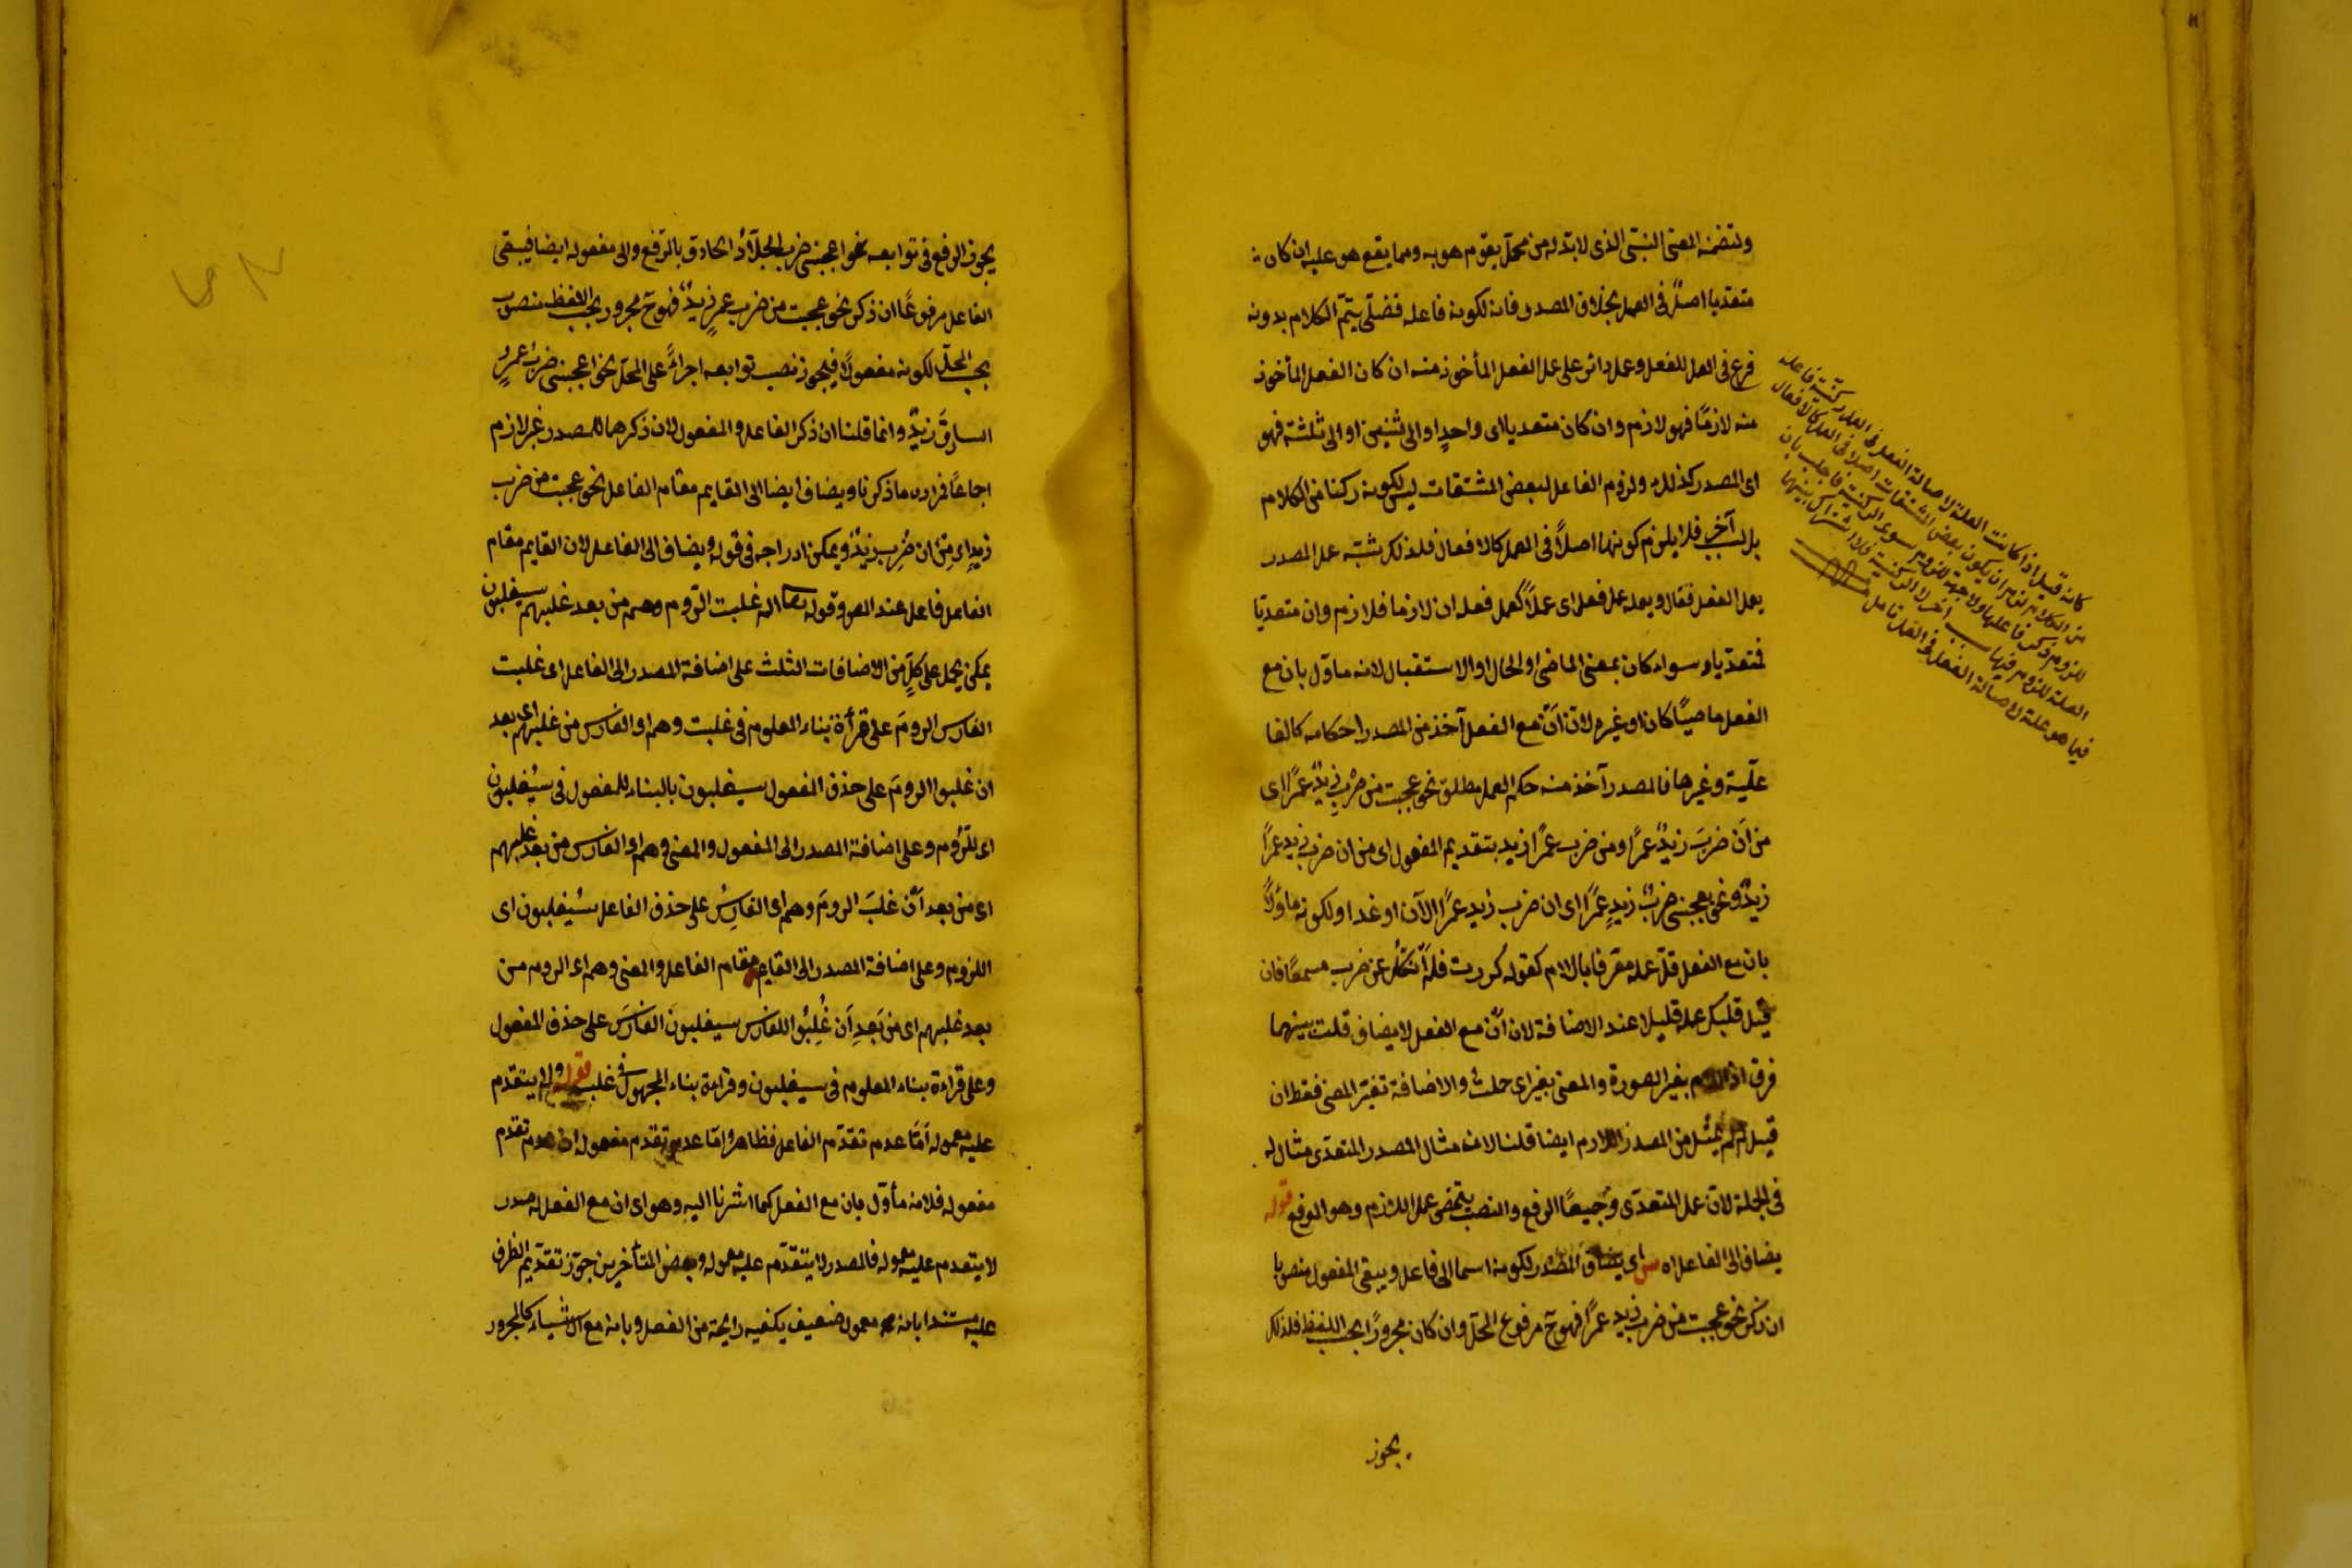 ولتضمنه المعنى النسبى الذى لا بد له من محل يقوم هو به ومما يقع هو عليه ان كان
متعديا اصلاً فى العمل بخلاف المصدر فانه لكونه فاعله فضلى يتم الكلام بدونه
فرع فى العمل للفعل وعمله دائر على عمل الفعل المأخوذ منه ان كان الفعل المأخوذ
منه لازمًا فهو لازم وان كان متعديا اى واحدٍ او الى اثنين او الى ثلثة فهو
اى المصدر كذلك ولزوم الفاعل لبعض المشتقات ليس لكونه ركنا من الكلام
بل لسبب آخر فلا يلزم كونها اصلاً فى العمل كالافعال فلذلك شبّه عمل المصدر
بعمل الفعل فقال ويعمل عمل فعله اى عملاً كعمل فعله ان لازما فلازم وان متعديًا
فمتعديا وسواء كان بمعنى الماضى او الحال او الاستقبال لانه مأوّل بان مع
الفعل ماضيًا كان او غيره لانّ اَنْ مع الفعل آخذ من المصدر احكامه كالفا
عليّة وغيرها فالمصدر آخذ منه حكم العمل مطلق نحو عجبت من ضرب زيدٌ عمرًا اى
من اَن ضربَ زيدٌ عمرًا ومن ضرب عمرًا زيد بتقديم المفعول اى من ان ضرب زيد عمرًا
زيدٌ ونحو يعجبنى ضربُ زيدٍ عمرًا اى ان ضرب زيد عمرًا الآن او غدا ولكونه مأوّلاً
بان مع الفعل قلّ عمله معرفا باللام كقوله كررت فلم اَنكُل عن ضرب مسمعًا فان
قيل فليكن عمله قليلا عند الاضافة لان اَنْ مع الفعل لا يضاف قلت بينهما
فرق اذ اللام يغير الصورة والمعنى بغير اى حلت والاضافة تغيّر المعنى فقط ان
قيل لم لم يمثل من المصدر اللازم ايضا قلنا لان مثال المصدر المتعدّى مثال له
فى الجملة لانّ عمل المتعدّى وجميعًا الرفع والنصب يتضمن عمل اللازم وهو الرفع قوله
يضاف الى الفاعل اه اى يضاف المصدر لكونه اسما الى فاعل ويبقى المفعول منصوبا
ان ذكر نحو عجبت من ضرب زيدٍ عمرًا فهو ح مرفوع المحلّ وان كان مجرورًا بحسب اللفظ فلذلك
يجوز
كانه قيل اذا كانت العلة لاصالة الفعل فى العمل ركنية فاعله
من الكلام لزم ان يكون بعض المشتقات اصلا فى العمل كالافعال
للزوم ذكر فاعلها ولا جهة للزوم سوى الركنية فاجاب بان
العلة للزوم فيها سبب آخر لا الركنية فلا اشتراك بينهما
فيما هو علة لاصالة الفعل فى العمل تأمل
يجوز الرفع فى توابعه نحو اعجبنى ضرب الجلاد الحاذق بالرفع والى مفعوله ايضا فيبقى
الفاعل مرفوعًا ان ذكر نحو عجبت من ضرب عمرٍ زيدٌ فهو ح مجرور بحسب اللفظ منصوب
بحسب المحلّ لكونه مفعولاً فيجوز نصب توابعه اجراءً على المحلّ نحو اعجبنى ضرب عمرٍو
السارقَ زيدٌ وانما قلنا ان ذكر الفاعل والمفعول لان ذكرهما للمصدر غير لازم
اجماعًا فرارا مما ذكرنا ويضاف ايضا الى القايم مقام الفاعل نحو عجبت من ضرب
زيدٍ اى مِن ان ضُرِب زيدٌ ويمكن ادراجه فى قوله ويضاف الى الفاعل لان القايم مقام
الفاعل فاعل عند المص وقوله تعالى الم غلبت الرّوم وهم من بعد غلبهم سيغلبون
يمكن يحمل على كلٍّ من الاضافات الثلث على اضافة المصدر الى الفاعل اى غلبت
الفارس الرومَ على قرأة بناء المعلوم فى غلبت وهم او الفارس من غلبهم اى بعد
ان غلبوا الرومَ على حذف المفعول سيغلبون بالبناء للمفعول فى سيُغلبون
اى للرّوم وعلى اضافة المصدر الى المفعول والمعنى وهم او الفارس من بعد غلبهم
اى من بعد اَنْ غلبَ الرومَ وهم اى الفارسُ على حذف الفاعل سيُغلبون اى
اللزوم وعلى اضافة المصدر الى القايم مقام الفاعل والمعنى وهم اى الروم من
بعد غلبهم اى من بَعدِ اَن غُلِبُوا للفارس سيغلبونَ الفارسَ على حذف المفعول
وعلى قراءة بناء المعلوم فى سيغلبون وقراءة بناء المجهول فى غلبت قوله ولا يتقدم
عليه معموله اَمّا عدم تقدّم الفاعل فظاهر وامّا عدم تقدم مفعوله ان عدم تقدم
مفعوله فلانه مأوّل بان مع الفعل كما اشرنا اليه وهو اى ان مع الفعل له صدر
لا يتقدم عليه معموله فالمصدر لا يتقدّم عليه معموله وبعض المتأخرين جوّز تقديم الظرف
عليه مستندا بانه معمول ضعيف يكفيه رايحة من الفعل وبانه مع الاشياء كالمجرور